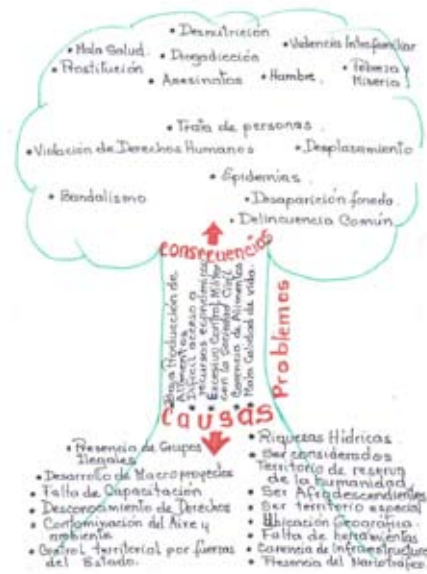 • Desnutrición
• Mala Salud. • Drogadicción • Violencia Intrafamiliar
• Prostitución • Asesinatos • Hambre. • Pobreza y
Miseria
• Trata de personas.
• Violación de Derechos Humanos • Desplazamiento
• Epidemias.
• Bandalismo • Desaparición forzada
• Delincuencia Común
Consecuencias
Baja Producción de
Alimentos
• Dificil acceso a
recursos económicos
• Excesivo Control Militar
con la Sociedad Civil
• Carencia de Alimentos
• Mala Calidad de vida.
Problemas
Causas
• Presencia de Grupos
Ilegales
• Desarrollo de Macroproyectos
• Falta de Capacitación
• Desconocimiento de Derechos
• Contaminación del Aire y
ambiente
• Control territorial por fuerzas
del Estado.
• Riquezas Hídricas
• Ser considerados
Territorio de reserva
de la humanidad
• Ser Afrodescendientes
• Ser territorio especial
• Ubicación Geográfica.
• Falta de herramientas
• Carencia de Infraestructura
• Presencia del Narcotráfico